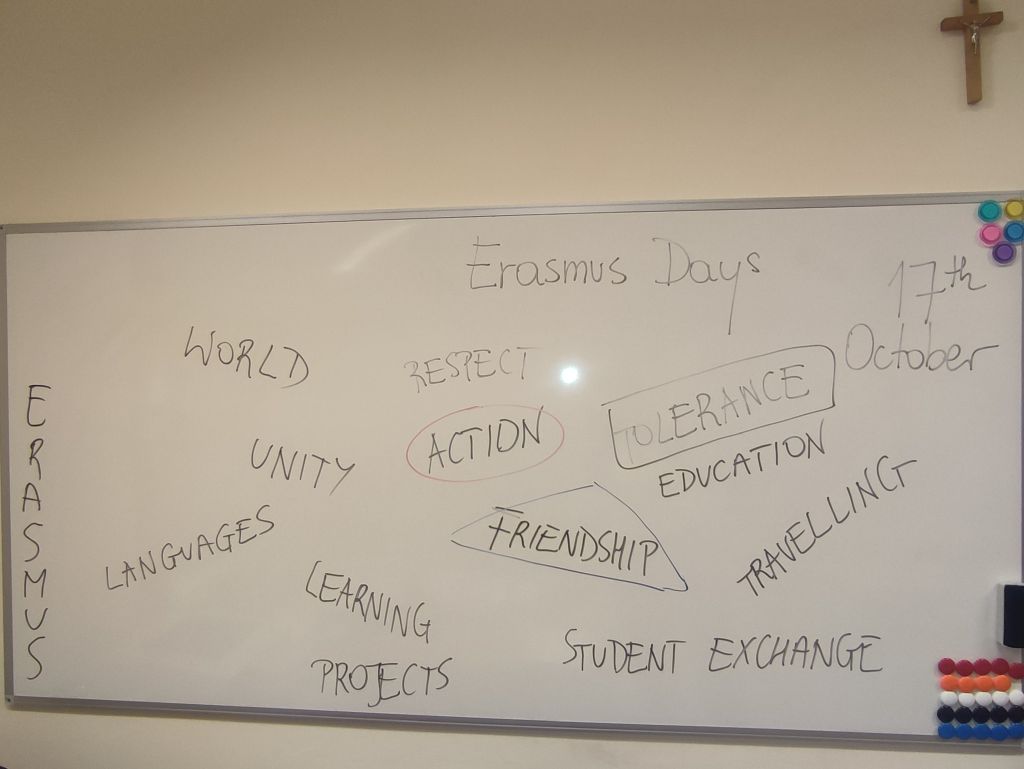 Erasmus Days
17th
October
WORLD
RESPECT
TOLERANCE
ERASMUS
UNITY
ACTION
EDUCATION
LANGUAGES
FRIENDSHIP
TRAVELLING
LEARNING
STUDENT EXCHANGE
PROJECTS